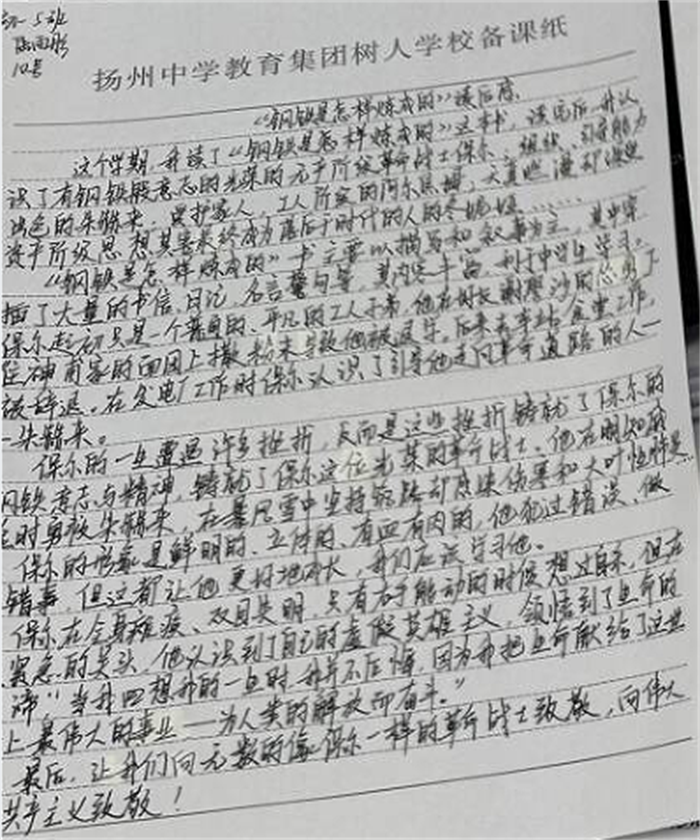 初一5班
10号
扬州中学教育集团树人学校备课纸
《钢铁是怎样炼成的》读后感
这个学期,我读了《钢铁是怎样炼成的》这本书,读完后,我认
识了有钢铁般意志的光荣的无产阶级革命战士保尔、组织、引导能力
出色的朱赫来,工人阶级的阿尔焦姆,天真
资产阶级思想甚至最终成为落后于时代的人的冬妮娅……
《钢铁是怎样炼成的》书主要以描写和叙事为主,其中穿
插了大量的书信、日记、名言警句等,其内容丰富,利于中学生学习。
保尔起初只是一个普通的、平凡的工人子弟,他在好友谢廖沙的
神甫家的面团上撒粉末导致他被退学。后来去车站食堂工作,
被辞退。在发电厂工作时保尔认识了引导他走向革命道路的人—
—朱赫来。
保尔的一生遭遇许多挫折,反而是这些挫折铸就了保尔的
钢铁意志与精神,铸就了保尔这位光荣的革命战士。他在明知
时勇救朱赫来,在暴风雪中坚持筑路却感染伤寒和大叶性肺炎…
保尔的形象是鲜明的、立体的、有血有肉的,他犯过错误、做
错事,但这都让他更好地成长,我们应该学习他。
保尔在全身瘫痪、双目失明,只有右手能动的时候想过自杀,但在
紧急的关头,他认识到了自己的虚假英雄主义,领悟到了生命的
谛“当我回想我的一生时,我并不后悔,因为我把生命献给了这世
上最伟大的事业——为人类的解放而奋斗。”
最后,让我们向无数的像保尔一样的革命战士致敬,向伟大
共产主义致敬!